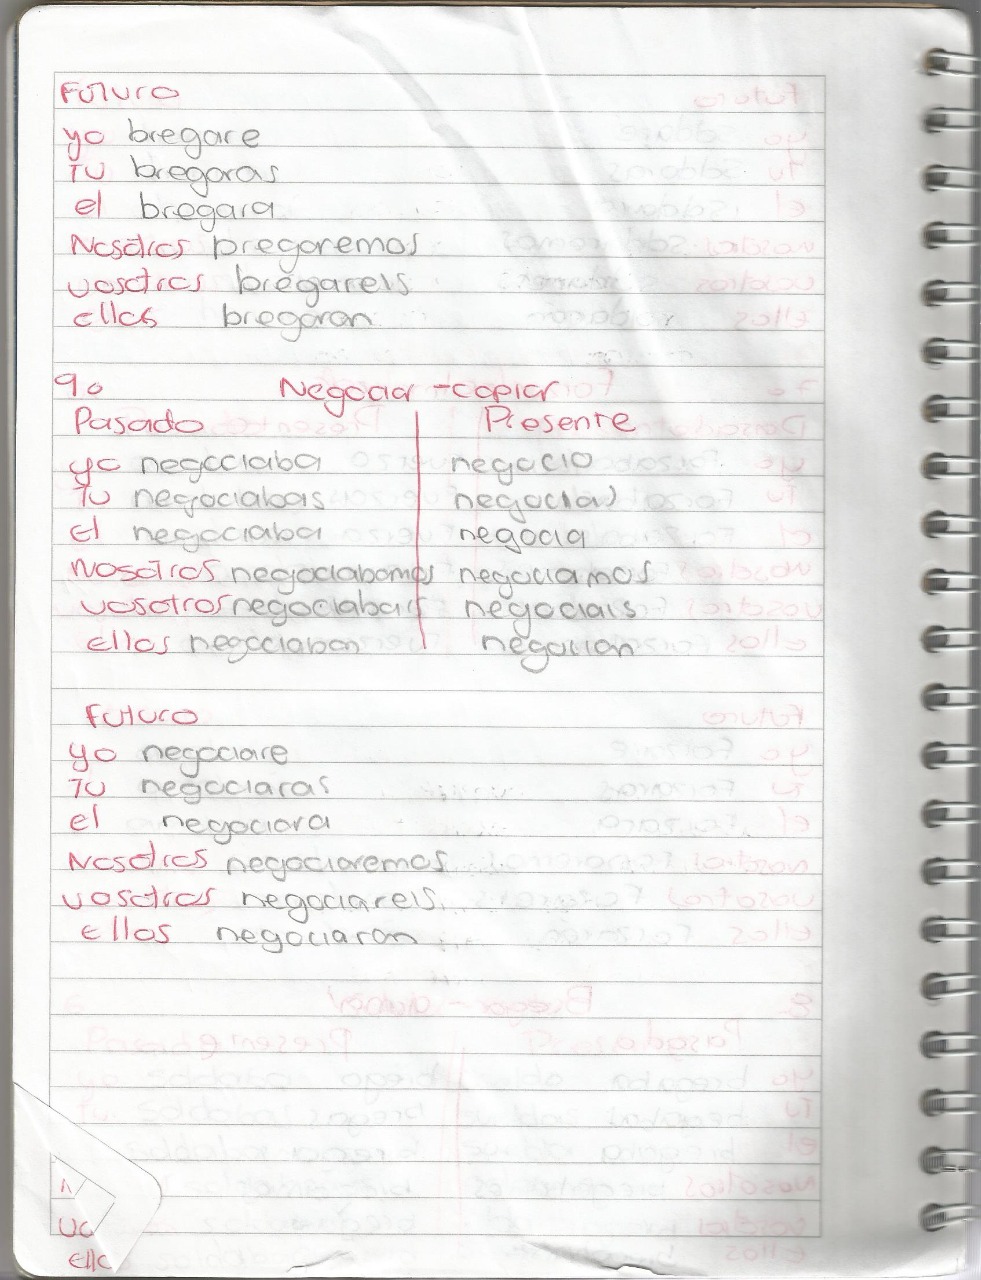 Futuro
yo bregare
Tu bregaras
el bregara
Nosotros bregaremos
vosotros bregareis
ellos bregaran
9o Negociar - copiar
Pasado Presente
yo negociaba negocio
Tu negociabas negocias
El negociaba negocia
Nosotros negociabamos negociamos
vosotros negociabais negociais
Ellos negociaban negocian
Futuro
yo negociare
Tu negociaras
el negociara
Nosotros negociaremos
vosotros negociareis
Ellos negociaran